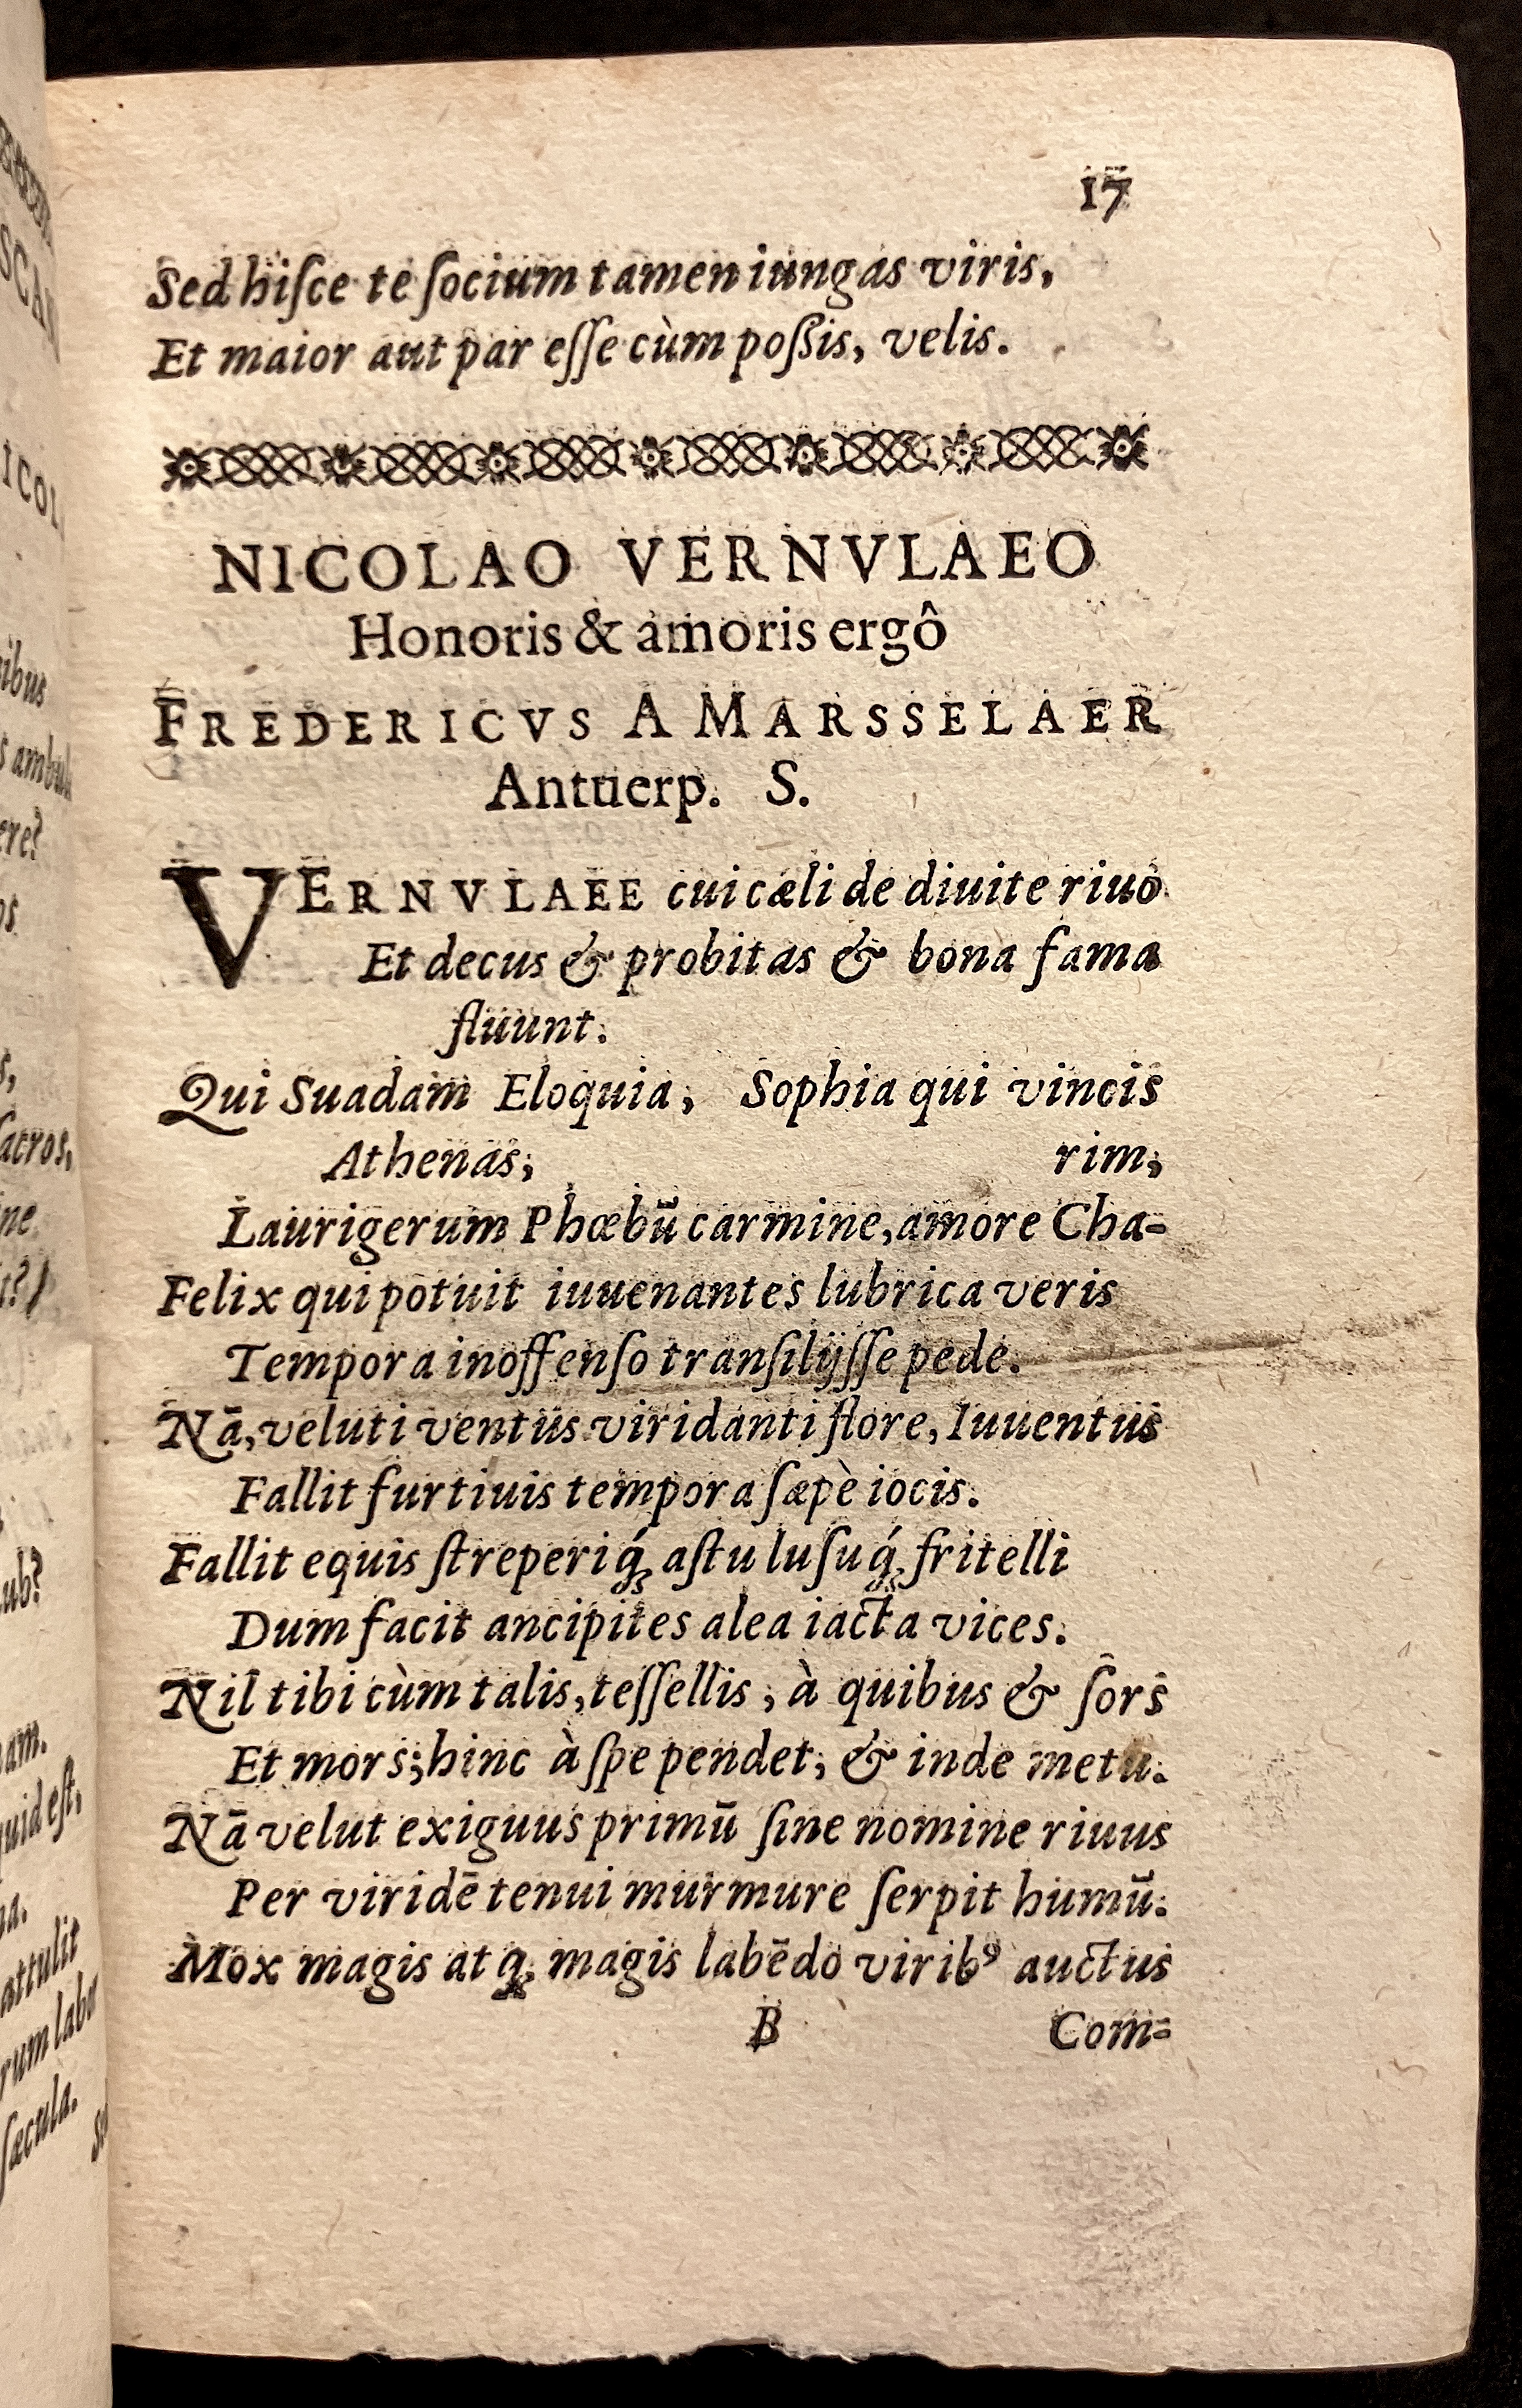 17
Sed hiſce te ſocium tamen iungas viris,
Et maior aut par eſſe cùm poßis, velis.
NICOLAO VERNVLAEO
Honoris & amoris ergô
FREDERICVS A MARSSELAER
Antuerp. S.
VERNVLAEE cui cæli de diuite riuo
Et decus & probitas & bona fama
fluunt.
Qui Suadam Eloquia, Sophia qui vincis
Athenas; rim;
Laurigerum Phœbū carmine, amore Cha-
Felix qui potuit iuuenantes lubrica veris
Tempora inoffenſo tranſilijſſe pede.
Nā, veluti ventus viridanti flore, Iuuentus
Fallit furtiuis tempora ſæpè iocis.
Fallit equis ſtreperiq́ꝫ aſtu luſuq́ꝫ fritelli
Dum facit ancipites alea iacta vices.
Nil tibi cùm talis, teſſellis, à quibus & ſors
Et mors; hinc à ſpe pendet, & inde metu.
Nā velut exiguus primū ſine nomine riuus
Per viridē tenui murmure ſerpit humū.
Mox magis atqꝫ magis labēdo viribꝰ auctus
B Com-
ibus
ere?
ſacros,
ine
ub?
quid eſt,
attulit
rum labor
ſæcula.